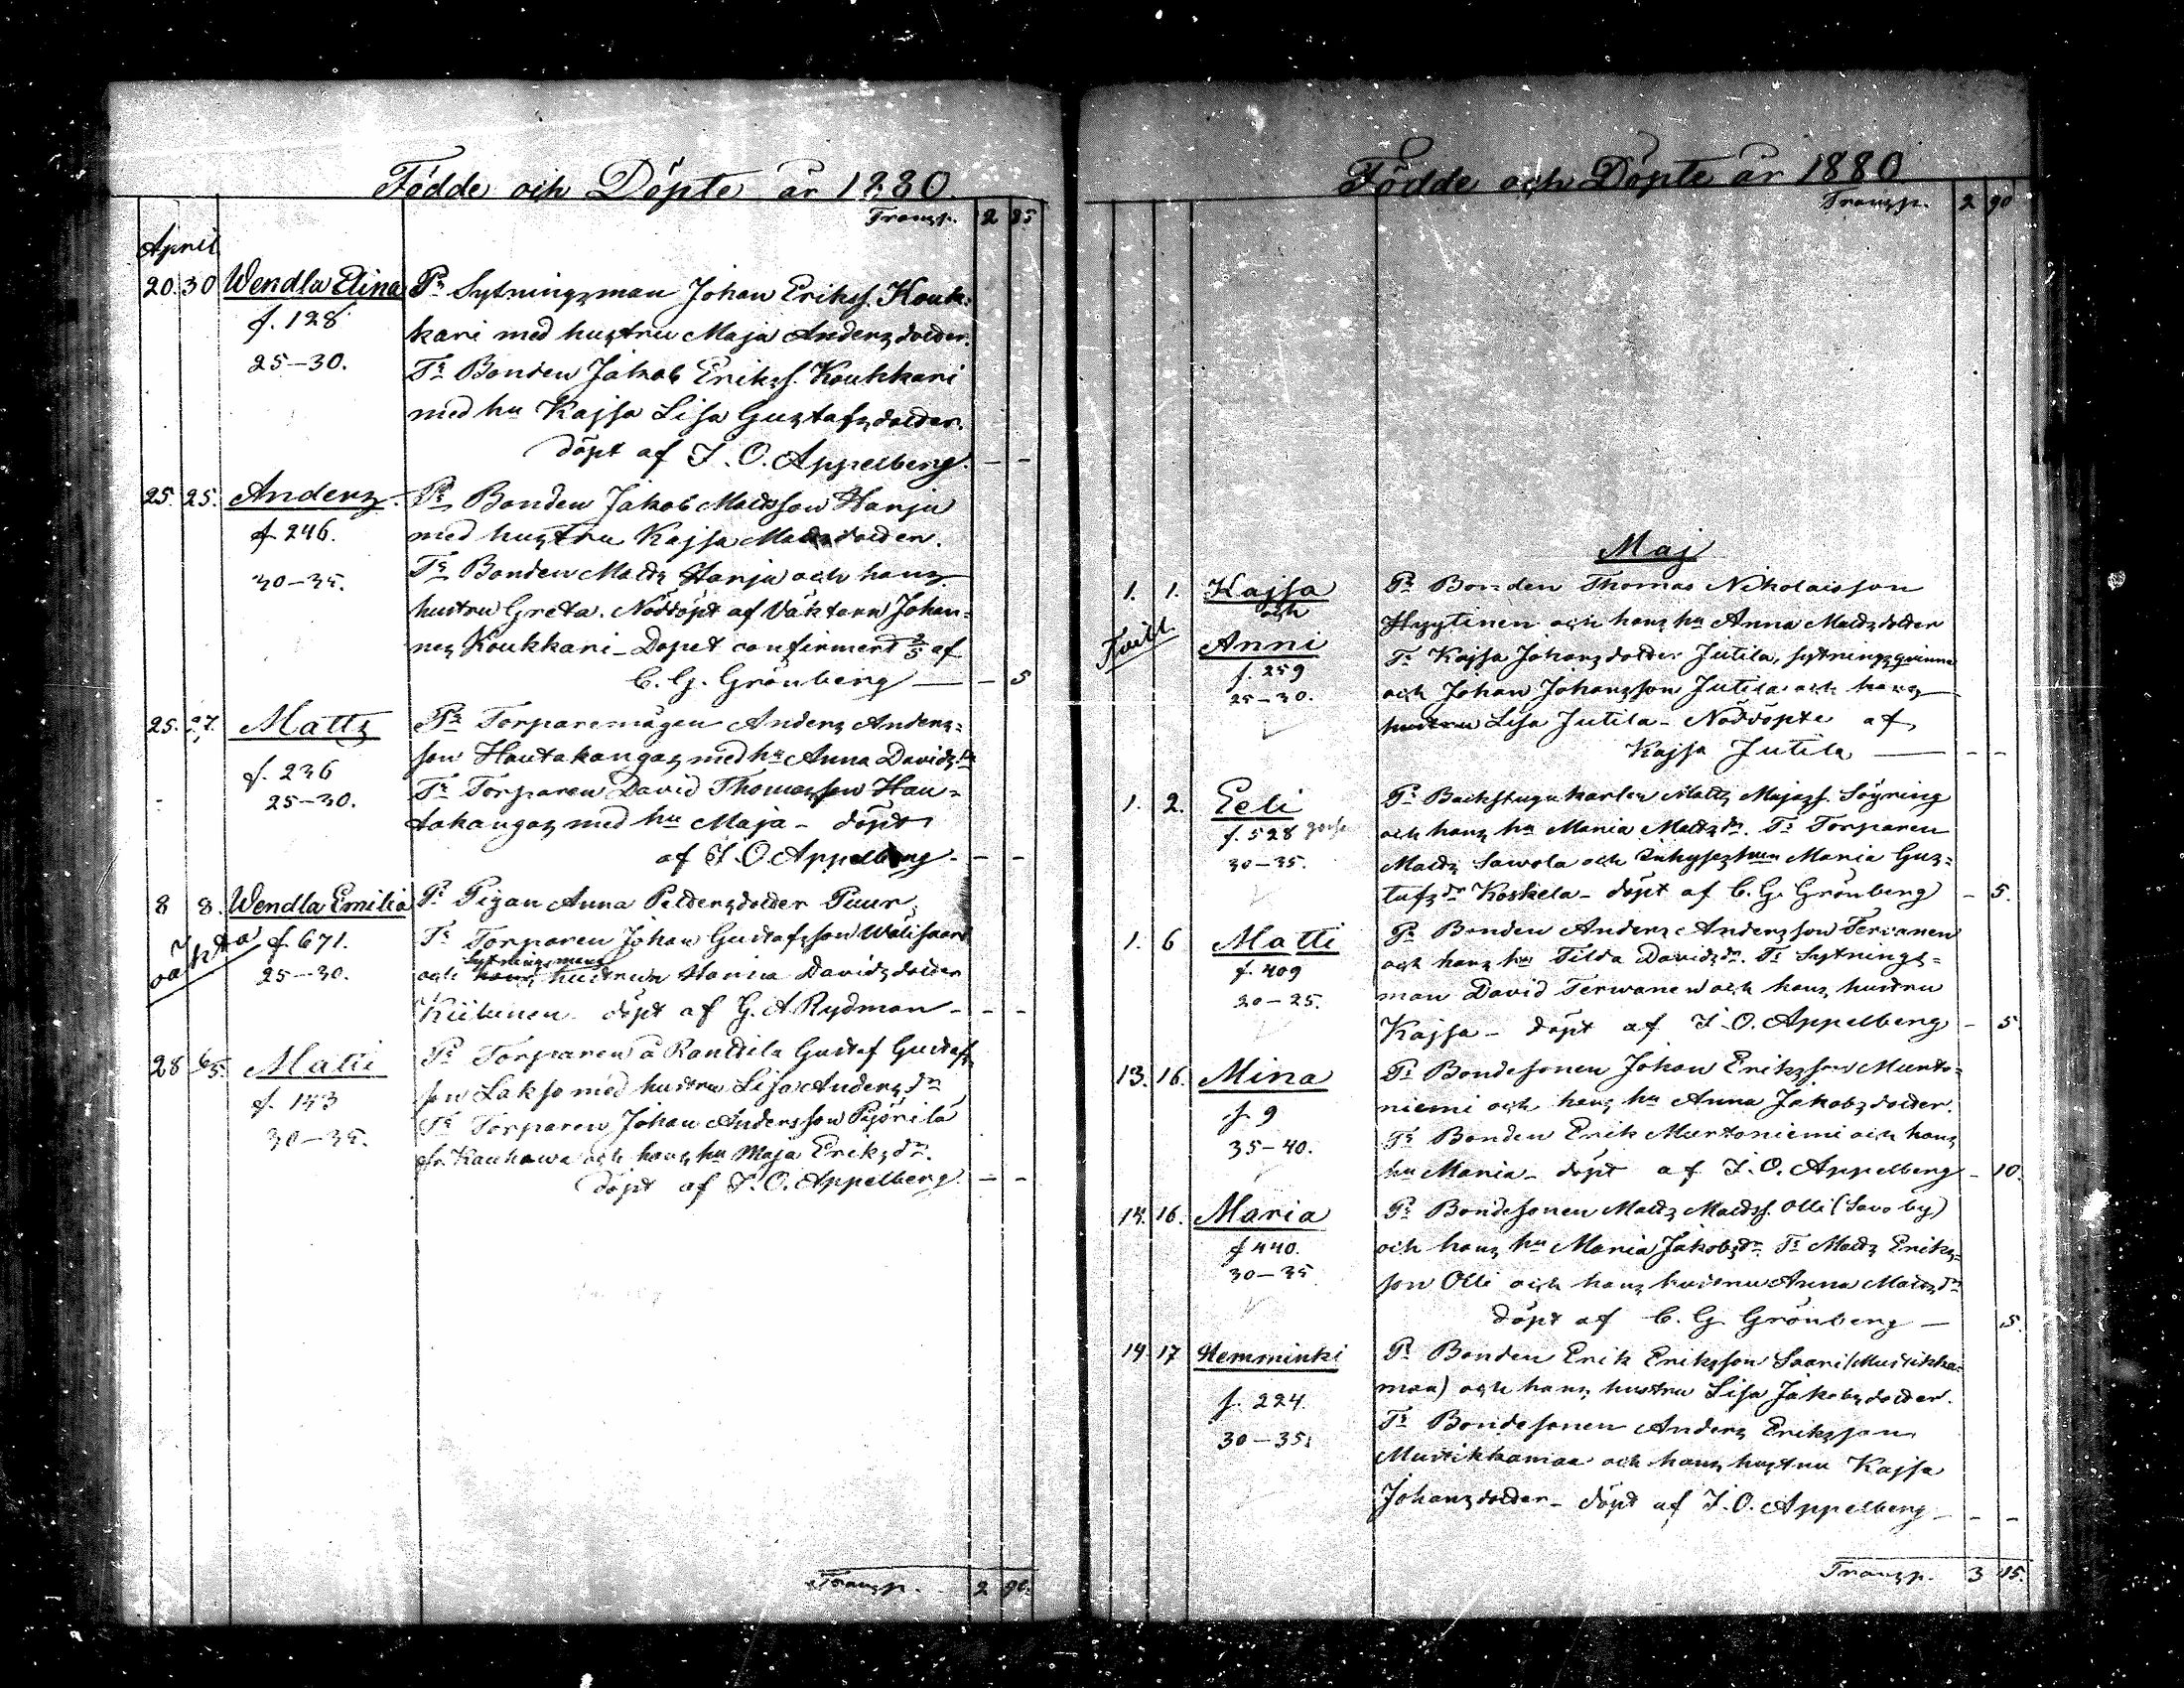 Födde och Döpte år 1880.
Transp. 2 85
April
20. 30 Wendla Elina Pr Sytningsman Johan Erikss. Kouk-
f. 128 kari med hustru Maja Andersdotter.
25–30. Tr Bonden Jakob Erikss. Koukkari
med hu Kajsa Lisa Gustafsdotter.
döpt af J. O. Appelberg. – –
25. 25. Anders. Pr Bonden Jakob Mattsson Harju
f. 246. med hustru Kajsa Mattsdotter.
30–35. Tr Bonden Matts Harju och hans
hustru Greta. Nöddöpt af Väktaren Johan-
nes Koukkari – Dopet confirmerdt 2/5 af
C. G. Grönberg — – 5
25. 27. Matts Pr Torparemågen Anders Anders-
f. 236 son Hautakangas med hu Anna Davidsdr
25–30. Tr Torparen David Thomasson Hau-
takangas med hu Maja – döpt
af J. O. Appelberg. – –
8 8. Wendla Emilia Pr Pigan Anna Pettersdotter Puur.
oäkta f. 671. Tr Torparen Johan Gustafsson Wälisaari
25–30. och hans Sytningsmans hustrun Hanna Davidsdotter
Kiikunen. döpt af G. A Rydman – – –
28 Matti Pr Torparen å Ranttila Gustaf Gustafs-
f. 143 son Lakso med hustru Lisa Andersdr
30–35. Tr Torparen Johan Andersson Pyörilä
fr. Kauhawa och hans hu Maja Eriksdr.
döpt af J. O. Appelberg. – –
Transp. 2 90.
Födde och Döpte år 1880
Transp. 2 90
Maj
1. 1. Kajsa Pr Bonden Thomas Nikolaisson
och Hyytinen och hans hu Anna Mattsdotter
Tvill. Anni Tr Kajsa Johansdotter Jutila, sytningsqvinna
f. 259 och Johan Johansson Jutila och hans
25–30. hustru Lisa Jutila – Nöddöpte af
Kajsa Jutila — – –
1. 2. Eeli Pr Backstugukarlen Matts Majass. Söyring
f. 528 och hans hu Maria Mattsdr. Tr Torparen
30–35. Matts Sawola och Inhyseshun Maria Gus-
tafsdr Koskela – döpt af C. G. Grönberg – 5.
1. 6 Matti Pr Bonden Anders Andersson Terwanen
f. 409 och hans hu Tilda Davidsdr. Tr Sytnings-
20–25. man David Terwanen och hans hustru
Kajsa – döpt af J. O. Appelberg – 5
13. 16. Mina Pr Bondesonen Johan Eriksson Murto-
f. 9 niemi och hans hu Anna Jakobsdotter.
35–40. Tr Bonden Erik Murtoniemi och hans
hu Maria – döpt af J. O. Appelberg – 10.
14. 16. Maria Pr Bondesonen Matts Mattss. Olli (Savo by)
f 440. och hans hu Maria Jakobsdr Tr Matts Eriks-
30–35 son Olli och hans hustru Anna Mattsdr
döpt af C. G. Grönberg — 5.
14. 17 Hemminki Pr Bonden Erik Eriksson Saari (Mustikka-
f. 224. maa) och hans hustru Lisa Jakobsdotter.
30–35. Tr Bondesonen Anders Eriksson
Mustikkamaa och hans hustru Kajsa
Johansdotter – döpt af J. O. Appelberg – – –
Transp. 3 15.